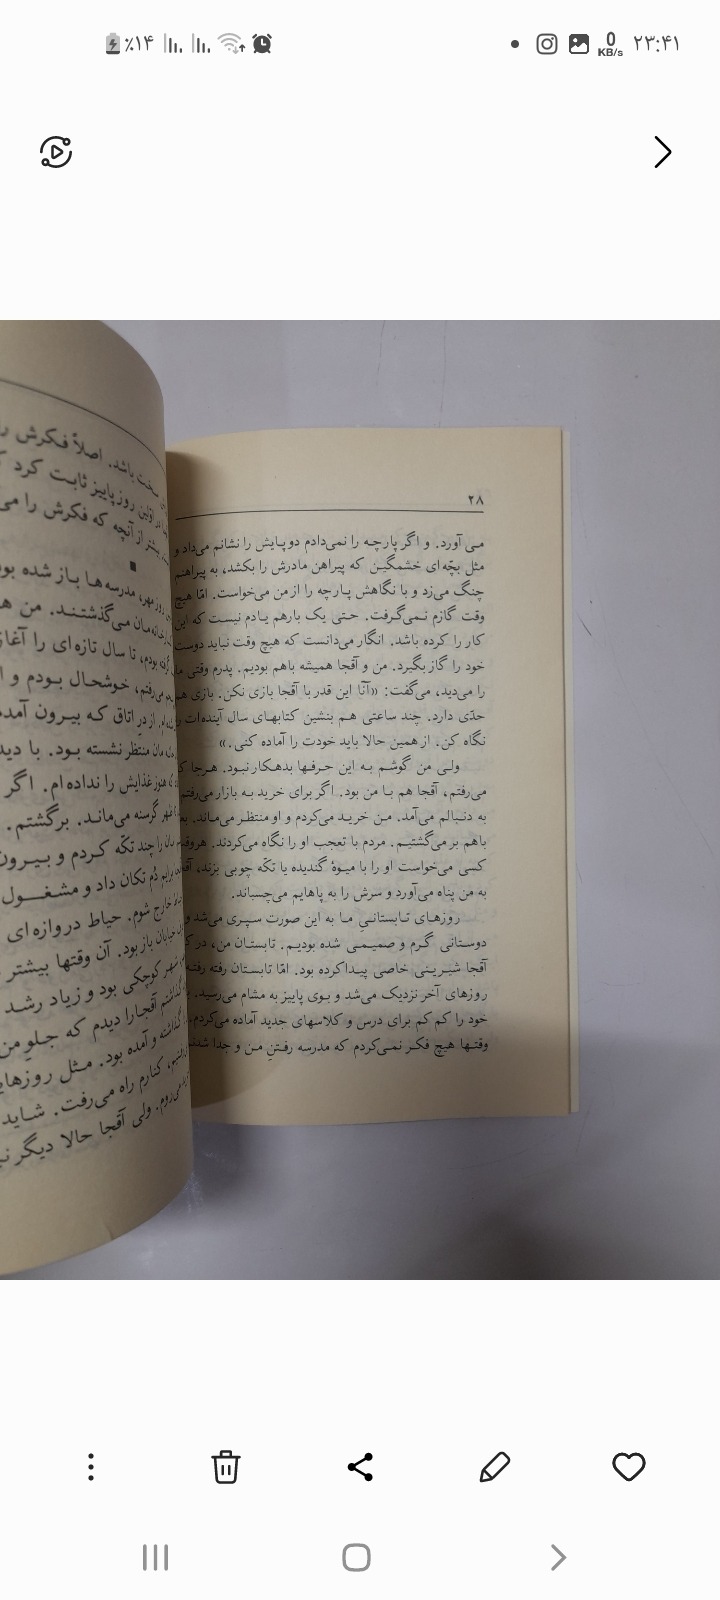 ٪۱۴
0 KB/s
۲۳:۴۱
۲۸
می آورد. و اگر پارچه را نمی‌دادم دوپایش را نشانم می‌داد و
مثل بچّه‌ای خشمگین که پیراهن مادرش را بکشد، به پیراهنم
چنگ می‌زد و با نگاهش پارچه را از من می‌خواست. امّا هیچ
وقت گازم نمی‌گرفت. حتی یک بار هم یادم نیست که این
کار را کرده باشد. انگار می‌دانست که هیچ وقت نباید دوست
خود را گاز بگیرد. من و آقجا همیشه باهم بودیم. پدرم وقتی ما
را می‌دید، می‌گفت: «آنّا این قدر با آقجا بازی نکن. بازی هم
حدّی دارد. چند ساعتی هم بنشین کتابهای سال آینده‌ات را
نگاه کن. از همین حالا باید خودت را آماده کنی.»
ولی من گوشم به این حرفها بدهکار نبود. هرجا که
می‌رفتم، آقجا هم با من بود. اگر برای خرید به بازار می‌رفتم
به دنبالم می‌آمد. من خرید می‌کردم و او منتظر می‌ماند. بعد
باهم برمی‌گشتیم. مردم با تعجب او را نگاه می‌کردند. هروقت
کسی می‌خواست او را با میوهٔ گندیده یا تکّه چوبی بزند، آقجا
به من پناه می‌آورد و سرش را به پاهایم می‌چسباند.
روزهای تابستانی ما به این صورت سپری می‌شد و
دوستانی گرم و صمیمی شده بودیم. تابستان من، در کنار
آقجا شیرینی خاصی پیدا کرده بود. امّا تابستان رفته رفته
روزهای آخر نزدیک می‌شد و بوی پاییز به مشام می‌رسید.
خود را کم کم برای درس و کلاسهای جدید آماده می‌کردم.
وقتها هیچ فکر نمی‌کردم که مدرسه رفتن من و جدا شدن
سخت باشد. اصلاً فکرش را
در اولین روز پاییز ثابت کرد که
بیشتر از آنچه که فکرش را می
روز مهر، مدرسه‌ها باز شده بود
خانه‌مان می‌گذشتند. من
بودم، تا سال تازه‌ای را آغاز
می‌رفتم، خوشحال بودم و
از در اتاق که بیرون آمدم
منتظر نشسته بود. با دیدن
که هنوز غذایش را نداده‌ام. اگر
ظهر گرسنه می‌ماند. برگشتم.
نان را چند تکّه کردم و بیرون
برایم دُم تکان داد و مشغول
خارج شوم. حیاط دروازه‌ای
خیابان باز بود. آن وقتها بیشتر
شهر کوچکی بود و زیاد رشد
گذاشتم آقجا را دیدم که جلو من
گذاشته و آمده بود. مثل روزهای
کنارم راه می‌رفت. شاید
می‌روم. ولی آقجا حالا دیگر